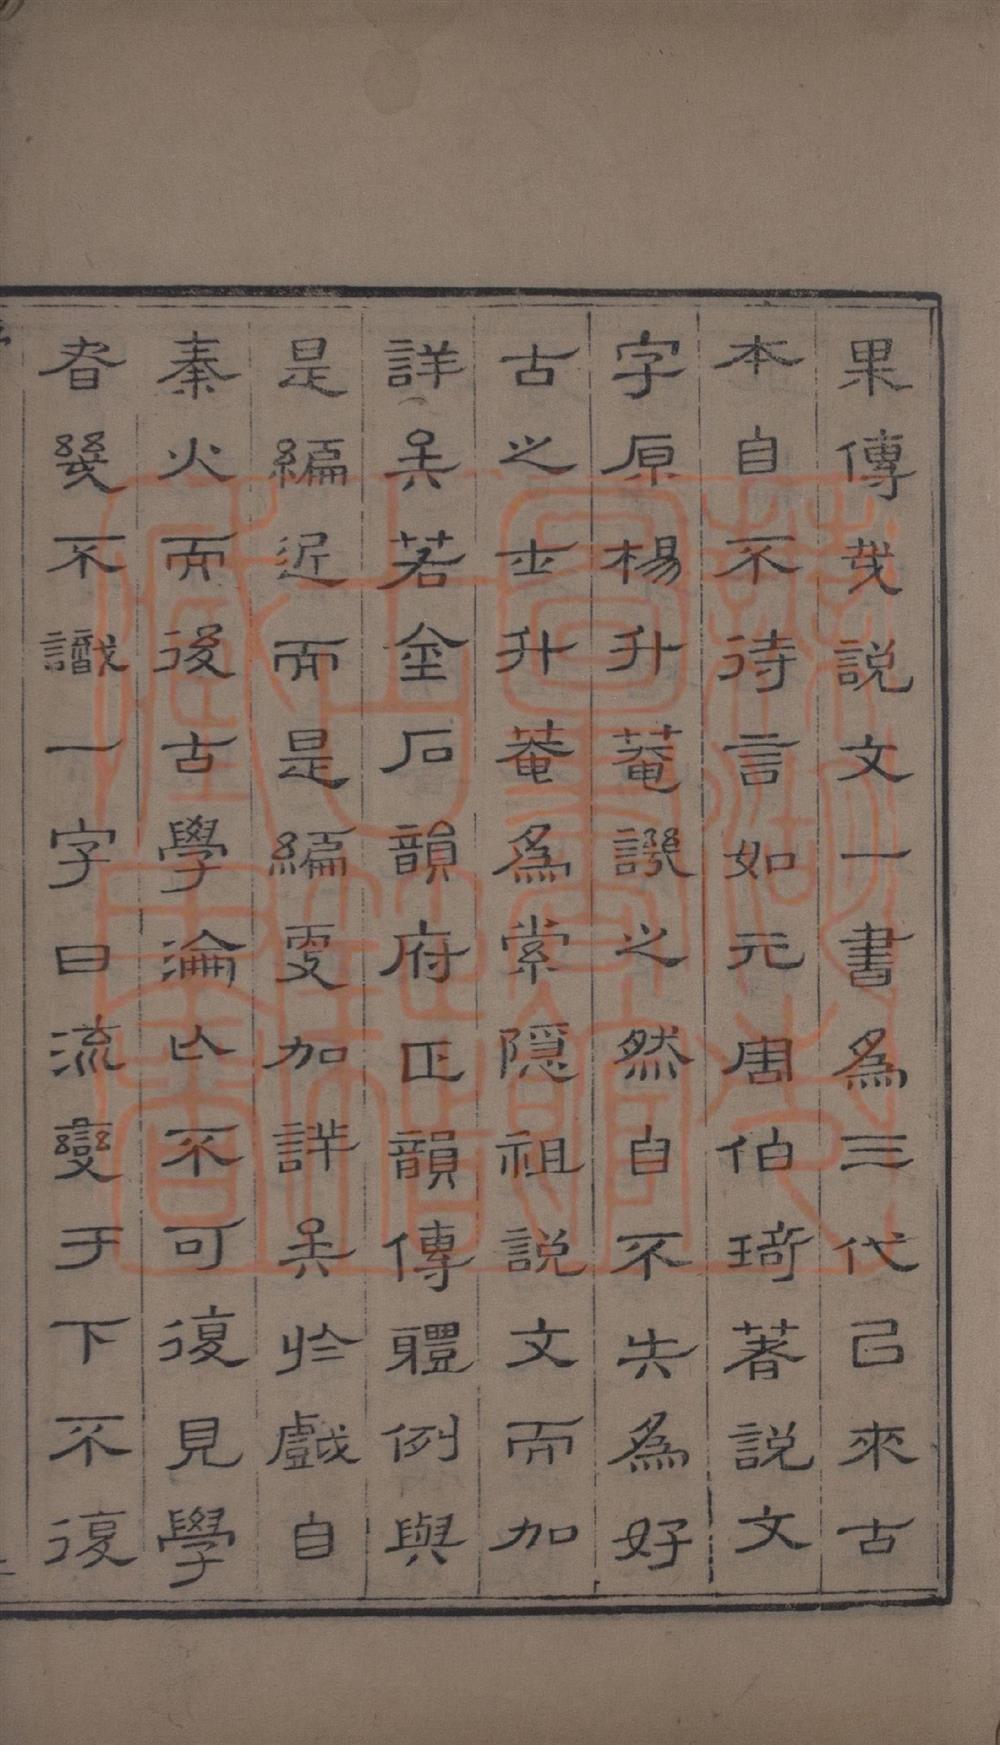 果傳哉說文一書為三代已來古
本自不待言如元周伯琦著說文
字原楊升菴譏之然自不失為好
古之士升菴為索隱祖說文而加
詳矣若金石韻府正韻傳體例與
是編近而是編更加詳矣於戲自
秦火而後古學淪亾不可復見學
者幾不識一字曰流變于下不復